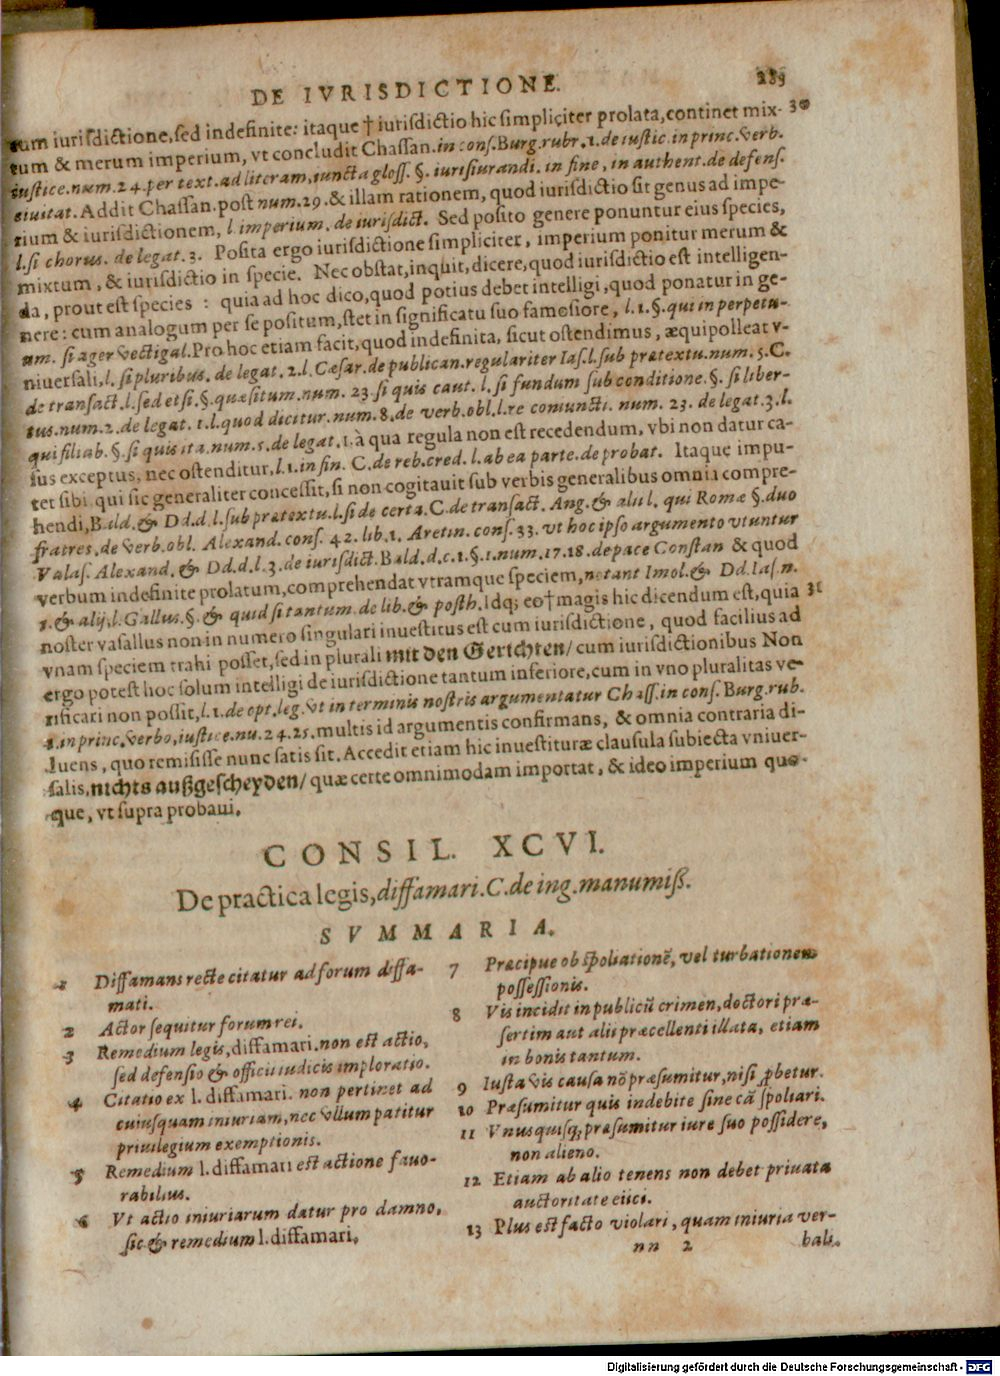 DE IVRISDICTIONE. 289
tum iurisdictione, sed indefinite: itaque † iurisdictio hic simpliciter prolata, continet mix- 30
tum & merum imperium, vt concludit Chassan. in cons. Burg. rubr. 1. de iustic. in princ. verb.
iustice. num. 24. per text. ad literam, iuncta gloss. §. iurisiurandi. in fine, in authent. de defens.
ciuitat. Addit Chassan. post num. 29. & illam rationem, quod iurisdictio sit genus ad impe-
rium & iurisdictionem, l. imperium. de iurisdict. Sed posito genere ponuntur eius species,
l. si chorus. de legat. 3. Posita ergo iurisdictione simpliciter, imperium ponitur merum &
mixtum, & iurisdictio in specie. Nec obstat, inquit, dicere, quod iurisdictio est intelligen-
da, prout est species : quia ad hoc dico, quod potius debet intelligi, quod ponatur in ge-
nere: cum analogum per se positum, stet in significatu suo famosiore, l. 1. §. qui in perpetu-
um. si ager vectigal. Pro hoc etiam facit, quod indefinita, sicut ostendimus, æquipolleat v-
niuersali, l. si pluribus. de legat. 2. l. Cæsar. de publican. regulariter Ias. l. sub prætextu. num. 5. C.
de transact. l. sed etsi. §. quæsitum. num. 23. si quis caut. l. si fundum sub conditione. §. si liber-
tus. num. 2. de legat. 1. l. quod dicitur. num. 8. de verb. obl. l. re coniuncti. num. 23. de legat. 3. l.
qui filiab. §. si quis ita. num. 5. de legat. 1. à qua regula non est recedendum, vbi non datur ca-
sus exceptus, nec ostenditur, l. 1. in fin. C. de reb. cred. l. ab ea parte. de probat. Itaque impu-
tet sibi, qui sic generaliter concessit, si non cogitauit sub verbis generalibus omnia compre-
hendi, Bald. & Dd. d. l. sub prætextu. l. si de certa. C. de transact. Ang. & alii l. qui Romæ §. duo
fratres. de verb. obl. Alexand. cons. 42. lib. 1. Aretin. cons. 33. vt hoc ipso argumento vtuntur
Valas. Alexand. & Dd. d. l. 3. de iurisdict. Bald. d. c. 1. §. 1. num. 17. 18. de pace Constan & quod
verbum indefinite prolatum, comprehendat vtramque speciem, notant Imol. & Dd. Ias. n.
1. & alij, l. Gallus. §. & quid si tantum. de lib. & posth. Idq; eo † magis hic dicendum est, quia 31
noster vasallus non in numero singulari inuestitus est cum iurisdictione, quod facilius ad
vnam speciem trahi posset, sed in plurali mit den Gerichten/ cum iurisdictionibus Non
ergo potest hoc solum intelligi de iurisdictione tantum inferiore, cum in vno pluralitas ve-
rificari non possit, l. 1. de opt. leg. vt in terminis nostris argumentatur Chass. in cons. Burg. rub.
1. in princ. verbo, iustice. nu. 24. 25. multis id argumentis confirmans, & omnia contraria di-
luens, quo remisisse nunc satis sit. Accedit etiam hic inuestituræ clausula subiecta vniuer-
salis, nichts außgescheyden/ quæ certe omnimodam importat, & ideo imperium quo-
que, vt supra probaui.
CONSIL. XCVI.
De practica legis, diffamari. C. de ing. manumiß.
SVMMARIA.
1 Diffamans recte citatur ad forum diffa-
mati.
2 Actor sequitur forum rei.
3 Remedium legis, diffamari. non est actio,
sed defensio & officii iudicis imploratio.
4 Citatio ex l. diffamari. non pertinet ad
cuiusquam iniuriam, nec vllum patitur
priuilegium exemptionis.
5 Remedium l. diffamari est actione fauo-
rabilius.
6 Vt actio iniuriarum datur pro damno,
sic & remedium l. diffamari.
7 Præcipue ob spoliationē, vel turbationem
possessionis.
8 Vis incidit in publicū crimen, doctori præ-
sertim aut alii præcellenti illata, etiam
in bonis tantum.
9 Iusta vis causa nō præsumitur, nisi ꝓbetur.
10 Præsumitur quis indebite sine cā spoliari.
11 Vnusquisq; præsumitur iure suo possidere,
non alieno.
12 Etiam ab alio tenens non debet priuata
auctoritate eiici.
13 Plus est facto violari, quam iniuria ver-
nn 2 bali.
Digitalisierung gefördert durch die Deutsche Forschungsgemeinschaft - DFG